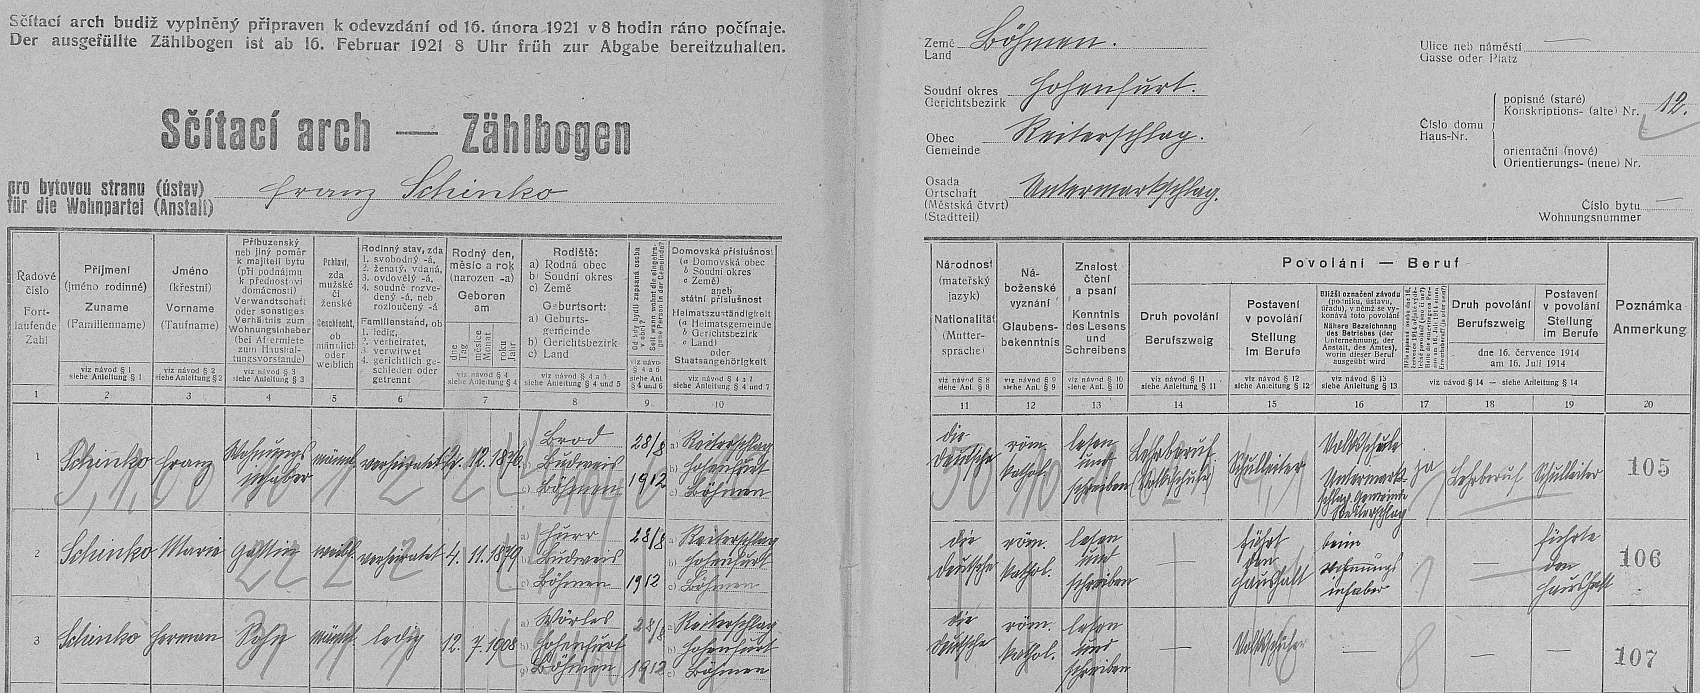 Sčítací arch budiž vyplněný připraven k odevzdání od 16. února 1921 v 8 hodin ráno počínaje.
Der ausgefüllte Zählbogen ist ab 16. Februar 1921 8 Uhr früh zur Abgabe bereitzuhalten.
Sčítací arch — Zählbogen
pro bytovou stranu (ústav)
für die Wohnpartei (Anstalt)
Franz Schinko
Země
Land
Böhmen.
Soudní okres
Gerichtsbezirk
Hohenfurt.
Obec
Gemeinde
Reiterschlag.
Osada
Ortschaft
(Městská čtvrť)
(Stadtteil)
Untermarktschlag.
Ulice neb náměstí —
Gasse oder Platz
Číslo domu
Haus-Nr.
popisné (staré)
Konskriptions- (alte) Nr. 12.
orientační (nové)
Orientierungs- (neue) Nr.
Číslo bytu —
Wohnungsnummer
Řadové
číslo
Fort-
laufende
Zahl
Příjmení
(jméno rodinné)
Zuname
(Familienname)
viz návod § 1
siehe Anleitung § 1
Jméno
(křestní)
Vorname
(Taufname)
viz návod § 2
siehe Anleitung § 2
Příbuzenský
neb jiný poměr
k majiteli bytu
(při podnájmu
k přednostovi
domácnosti)
Verwandtschaft
oder sonstiges
Verhältnis zum
Wohnungsinhaber
(bei Aftermiete
zum Haushal-
tungsvorstande)
viz návod § 3
siehe Anleitung § 3
Pohlaví,
zda
mužské
či
ženské
Geschlecht,
ob
männlich
oder
weiblich
Rodinný stav, zda
1. svobodný -á,
2. ženatý, vdaná,
3. ovdovělý -á,
4. soudně rozve-
dený -á, neb
rozloučený -á
Familienstand, ob
1. ledig,
2. verheiratet,
3. verwitwet
4. gerichtlich ge-
schieden oder
getrennt
Rodný den,
měsíc a rok
(narozen -a)
Geboren
am
dne
Tag
měsíce
Monat
roku
Jahr
viz návod § 4
siehe Anleitung § 4
Rodiště:
a) Rodná obec
b) Soudní okres
c) Země
Geburtsort:
a) Geburts-
gemeinde
b) Gerichtsbezirk
c) Land
viz návod § 4 a 5
siehe Anleitung § 4 und 5
Od kdy bydlí zapsaná osoba
v obci?
Seit wann wohnt die eingetra-
gene Person in der Gemeinde?
viz návod
§ 4 a 6
siehe Anl.
§ 4 und 6
Domovská příslušnost
(a Domovská obec
b Soudní okres
c Země)
aneb
státní příslušnost
Heimatszuständigkeit
(a Heimatsgemeinde
b Gerichtsbezirk
c Land)
oder
Staatsangehörigkeit
viz návod § 4 a 7
siehe Anleitung § 4 und 7
Národnost
(mateřský
jazyk)
Nationalität
(Mutter-
sprache)
viz návod § 8
siehe Anl. § 8
Ná-
boženské
vyznání
Glaubens-
bekenntnis
viz návod § 9
siehe Anl. § 9
Znalost
čtení
a psaní
Kenntnis
des Lesens
und
Schreibens
viz návod § 10
siehe Anl. § 10
Povolání — Beruf
Druh povolání
Berufszweig
viz návod § 11
siehe Anleitung § 11
Postavení
v povolání
Stellung
im Berufe
viz návod § 12
siehe Anleitung § 12
Bližší označení závodu
(podniku, ústavu,
úřadu), v němž se vy-
konává toto povolání
Nähere Bezeichnung
des Betriebes (der
Unternehmung, der
Anstalt, des Amtes),
worin dieser Beruf
ausgeübt wird
viz návod § 13
siehe Anleitung § 13
Druh povolání
Berufszweig
Postavení
v povolání
Stellung
im Berufe
dne 16. července 1914
am 16. Juli 1914
viz návod § 14 — siehe Anleitung § 14
Poznámka
Anmerkung
1 2 3 4 5 6 7 8 9 10 11 12 13 14 15 16 17 18 19 20
1 Schinko Franz Wohnungs
inhaber männl. verheiratet 12. 1870
a) Brod
b) Budweis
c) Böhmen
28/8
1912
a) Reiterschlag
b) Hohenfurt
c) Böhmen
die
deutsche
röm.
kathol.
lesen
und
schreiben
Lehrberuf
(Volksschule)
Schulleiter
Volksschule
Untermarkt-
schlag, Gemeinde
Reiterschlag
ja
Lehrberuf
Schulleiter
105
2 Schinko Marie Gattin weibl. verheiratet 4. 11. 1879
b) Budweis
c) Böhmen
28/8
1912
a) Reiterschlag
b) Hohenfurt
c) Böhmen
die
deutsche
röm.
kathol.
lesen
und
schreiben
—
führt
den
Haushalt
beim
Wohnungs
inhaber
—
führte
den
Haushalt
106
3 Schinko Herman Sohn männl. ledig 12. 7. 1908
a) Wörles
b) Hohenfurt
c) Böhmen
28/8
1912
a) Reiterschlag
b) Hohenfurt
c) Böhmen
die
deutsche
röm.
kathol.
lesen
und
schreiben
—
Volksschüler
— — —
107